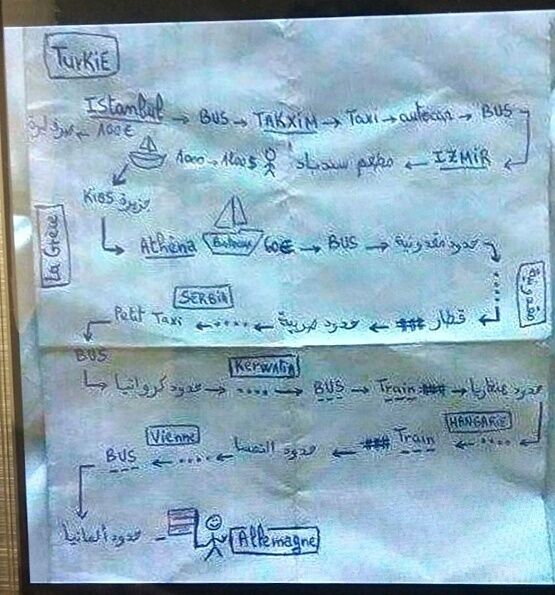 TURKiE
IStanbul → BUS → TAKXIM → Taxi → autocar → BUS
100€
1000 → 1200 $ مطعم سندباد ← IZMIR
KiOS جزيرة
La Grèce
Athèna Bateau 60€ → BUS → حدود مقدونية
مقدونية
SERBIA
Petit Taxi ← .... ← حدود صربية ← ### قطار ←
BUS
Kerwatia
حدود كرواتيا → .... → BUS → Train ### → حدود هنغاريا
HANGARIE
Vienne
BUS ← .... ← حدود النمسا ← ### Train ← ....
حدود ألمانيا
Allemagne